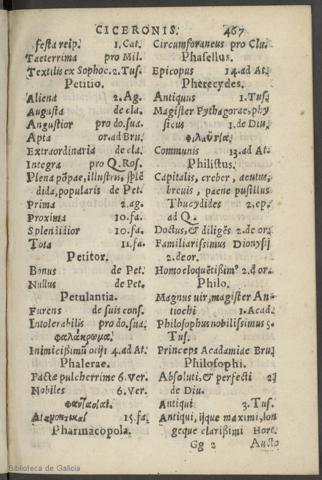 CICERONIS. 467
festa reip. 1. Cat.
Taeterrima pro Mil.
Textilis ex Sophoc. 2. Tus.
Petitio.
Aliena 2. Ag.
Augusta de cla.
Angustior pro do. sua.
Apta or. ad Bru.
Extraordinaria de cla.
Integra pro Q. Ros.
Plena põpae, illustris, splẽ
dida, popularis de Pet.
Prima 2. ag.
Proxima 10. fa.
Splendidior 10. fa.
Tota 11. fa.
Petitor.
Bonus de Pet.
Nullus de Pet.
Petulantia.
Furens de suis cons.
Intolerabilis pro do. sua.
φαλάκρωμα.
Inimicissimũ ocijs 4. ad At.
Phalerae.
Factae pulcherrime 6. Ver.
Nobiles 6. Ver.
φαντασίαι.
15. fa.
Pharmacopola.
Circumforaneus pro Clu.
Phasellus.
Epicopus 14. ad At.
Pherecydes.
Antiquus 1. Tus.
Magister Pythagorae, phy
sicus 1. de Diu.
φιλαυτία.
Communis 13. ad At.
Philistus.
Capitalis, creber, acutus,
breuis, paene pusillus
Thucydides 2. ep.
ad Q.
Doctus, & diligẽs 2. de or.
Familiarissimus Dionysij
2. de or.
Homo eloquẽtissim⁹ 2. d or.
Philo.
Magnus uir, magister An-
tiochi 1. Acad.
Philosophus nobilissimus 5.
Tus.
Princeps Academiae Bru.
Philosophi.
Absoluti, & perfecti 2.
de Diu.
Antiqui 3. Tus.
Antiqui, ijque maximi, lon
geque clarissimi Hort.
Gg 2 Aucto
Biblioteca de Galicia